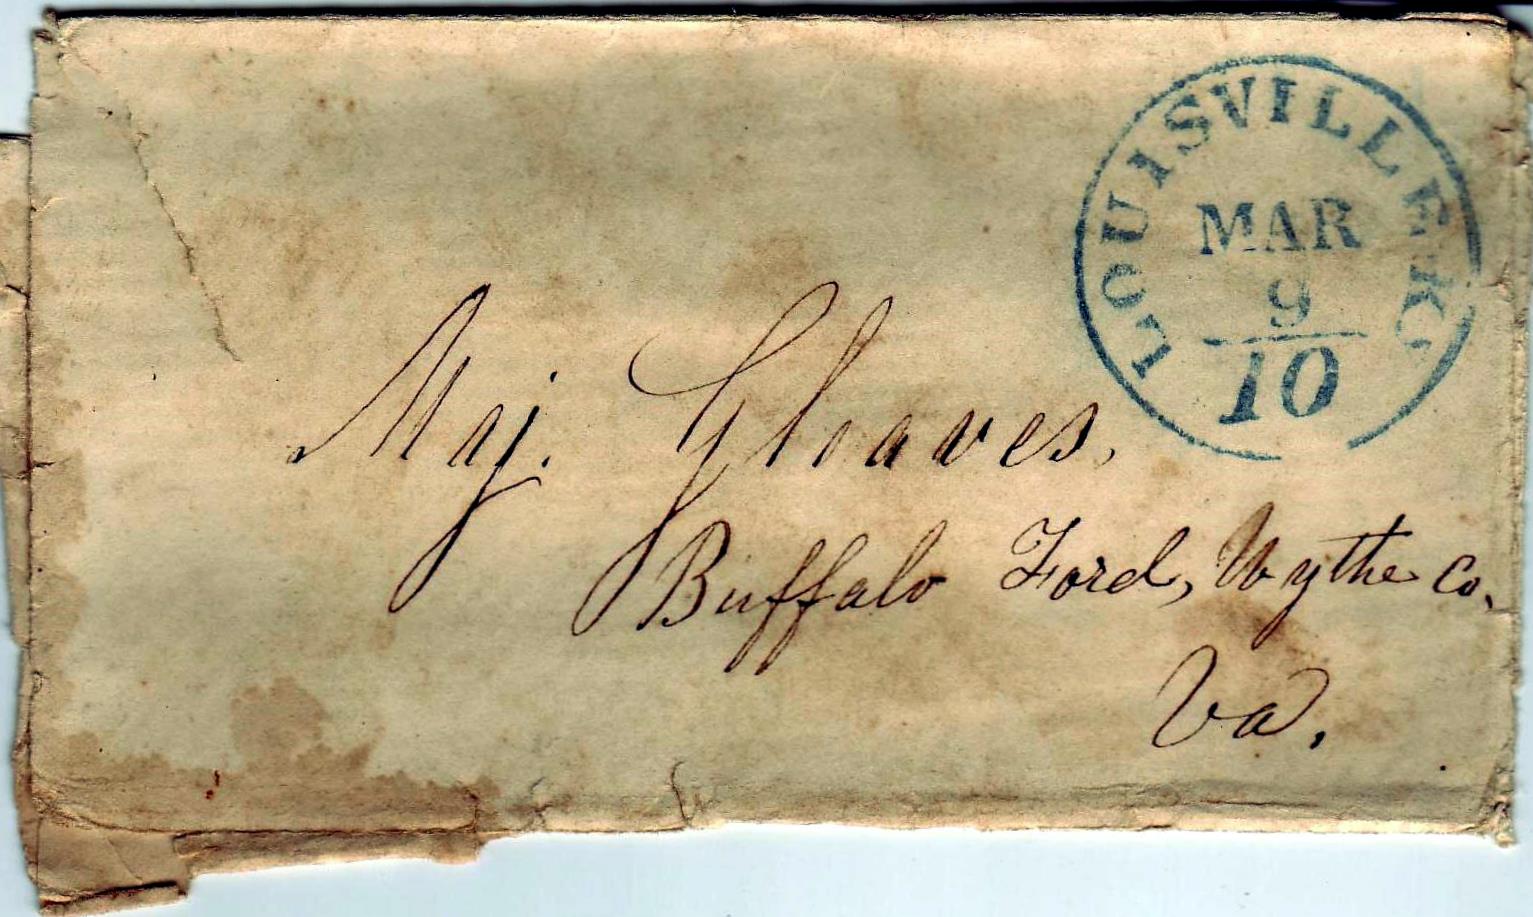 LOUISVILLE K.
MAR
9
10
Maj. Gleaves,
Buffalo Ford, Wythe Co.
Va.